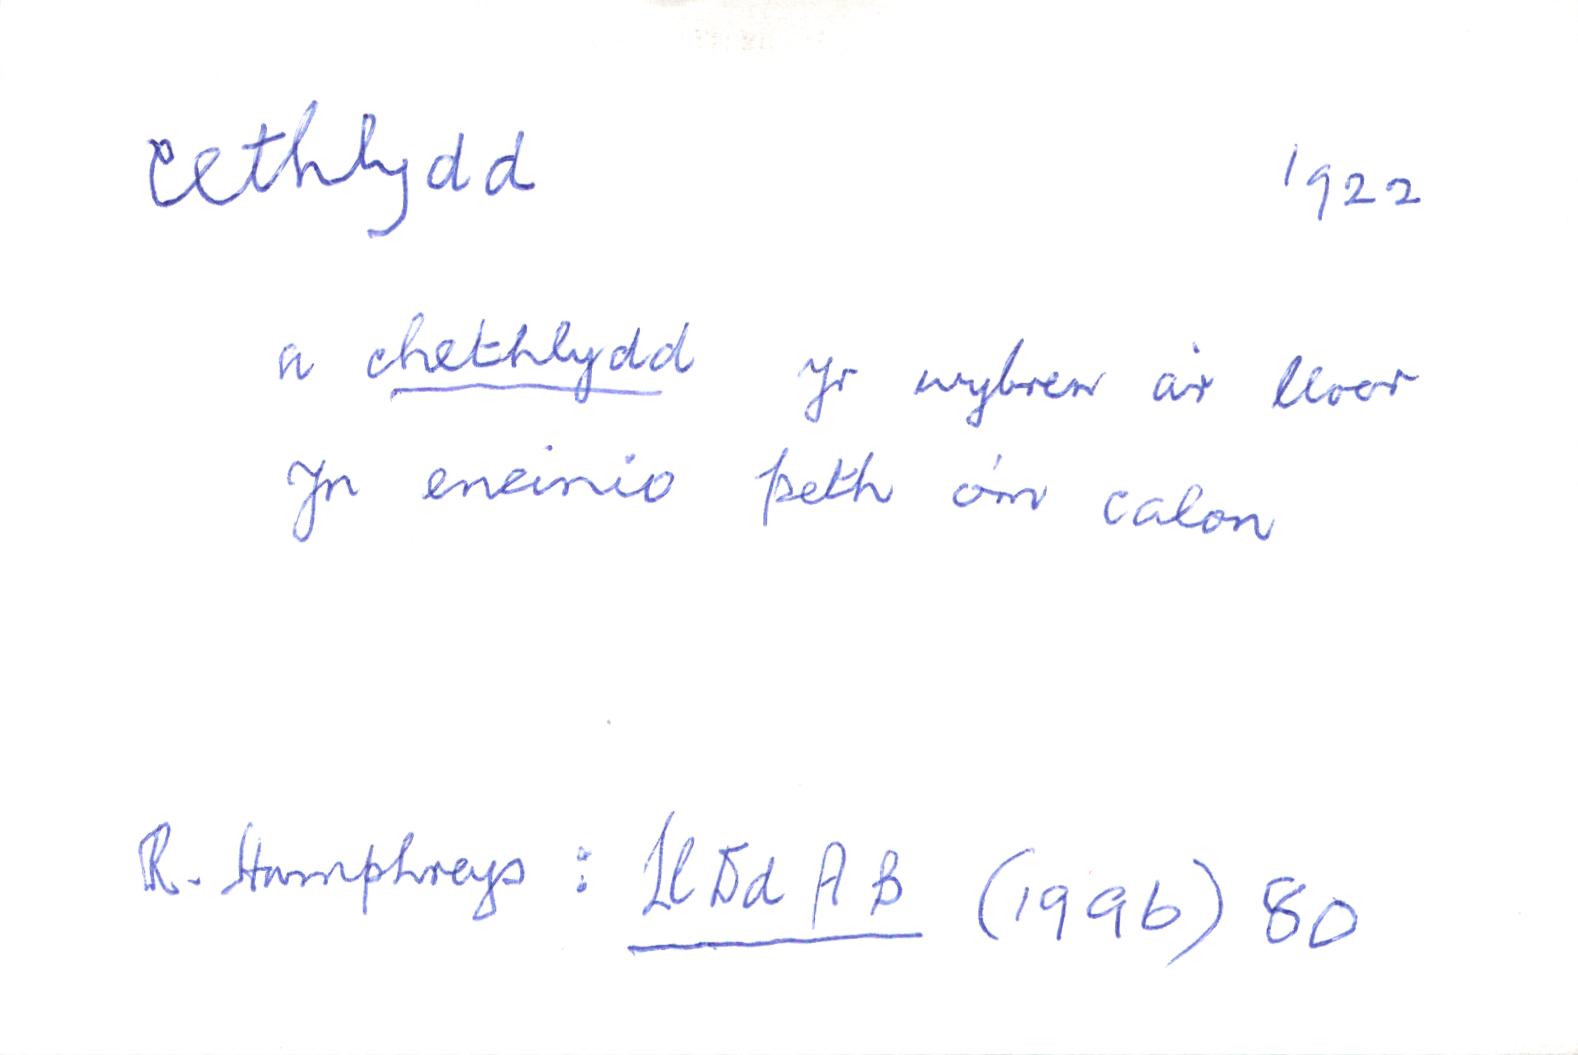 cethlydd 1922
a chethlydd yr wybren a'r lloer
Yn eneinio peth o'm calon
R. Humphreys : Ll Dd A B (1996) 80